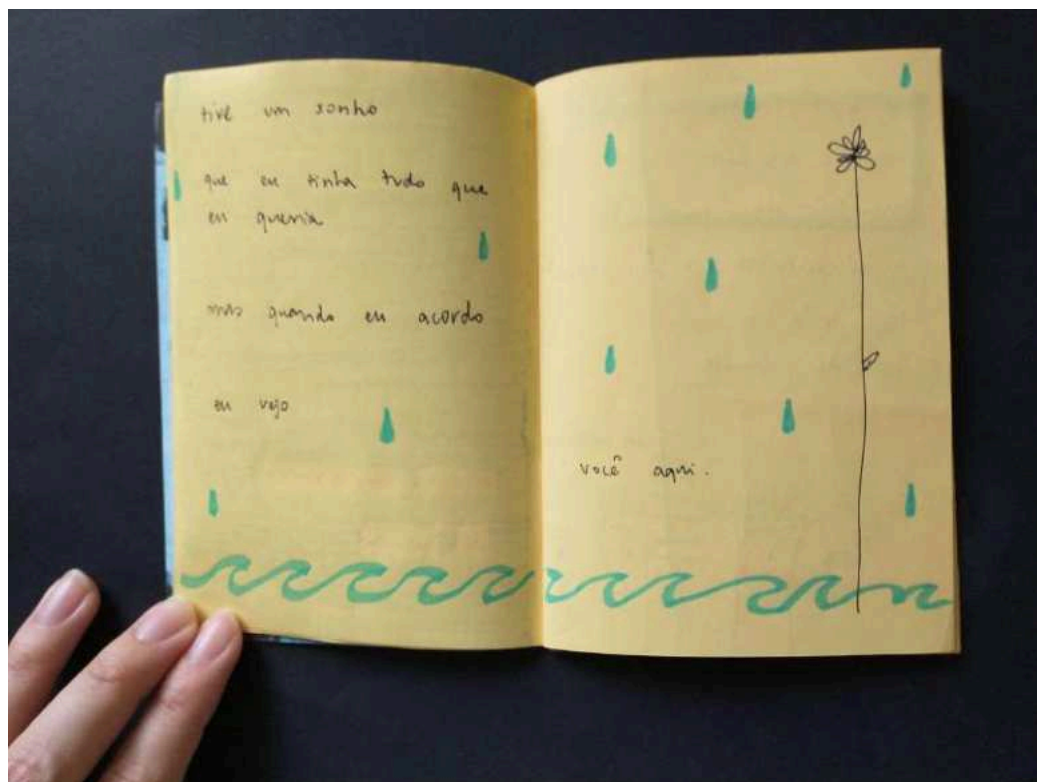 tive um sonho
que eu tinha tudo que
eu queria
mas quando eu acordo
eu vejo
você aqui.